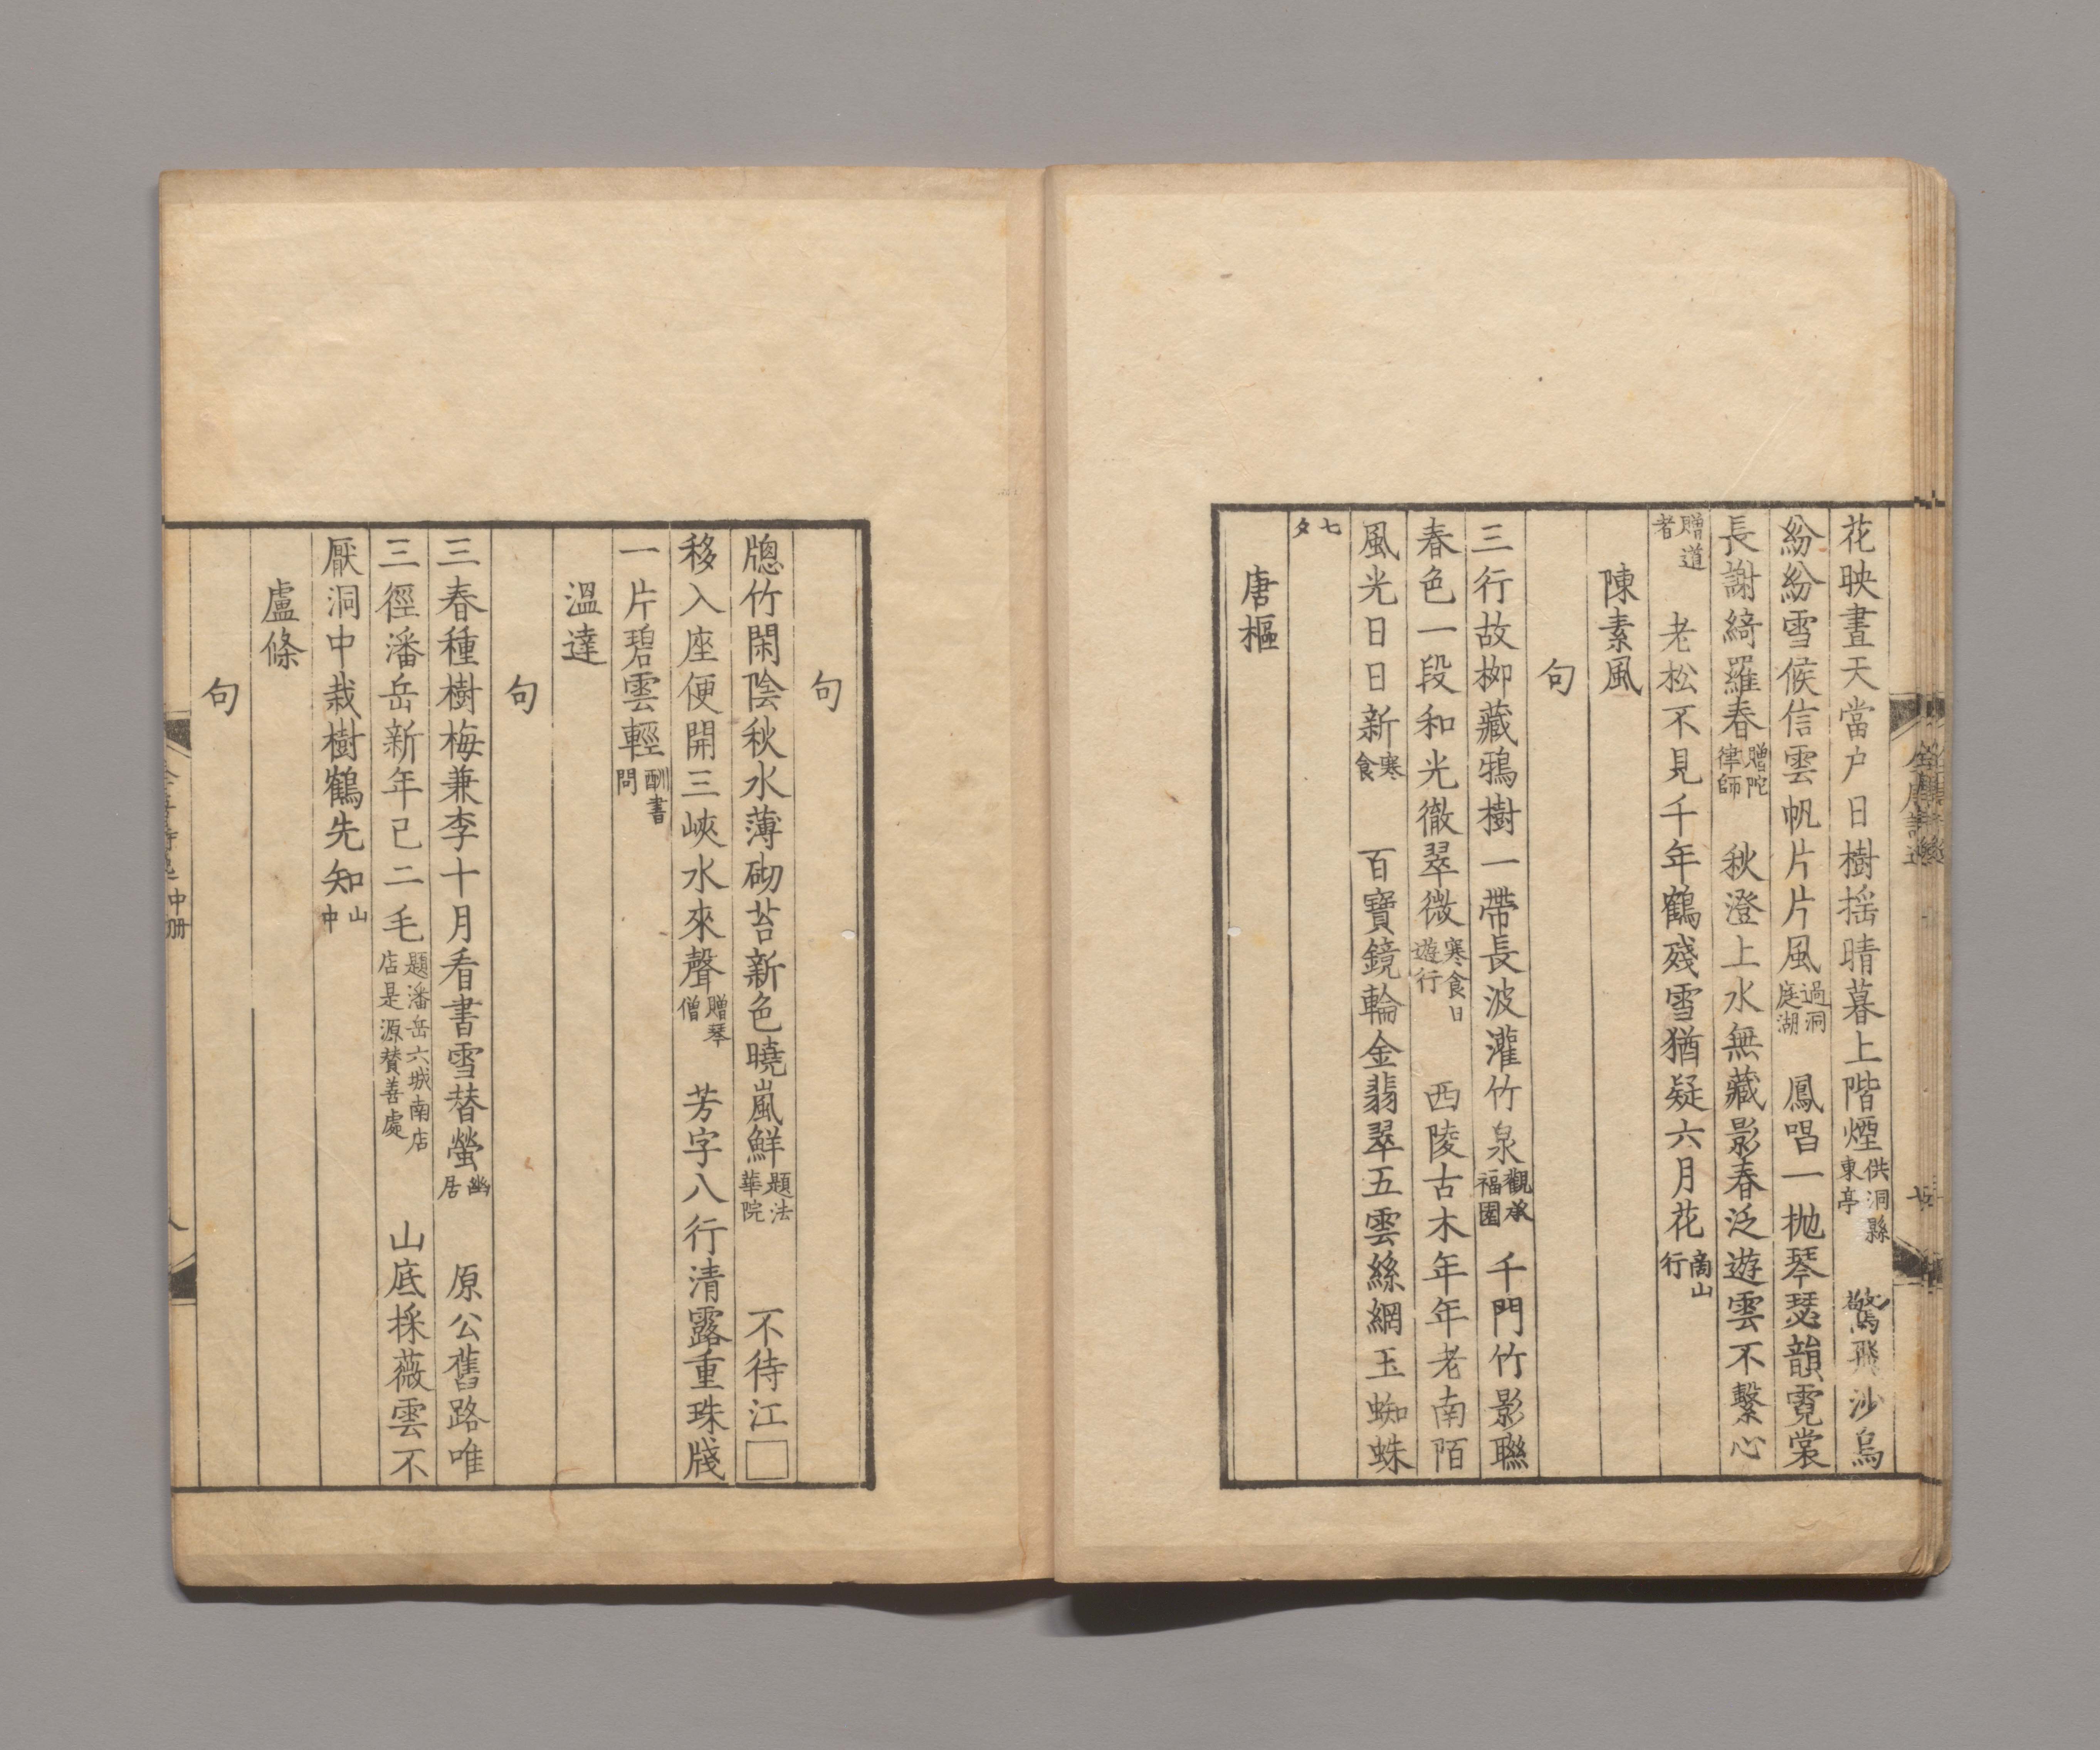 花映晝天當户日樹揺晴暮上階煙供洞縣東亭 驚飛沙烏
紛紛雪候信雲帆片片風過洞庭湖 鳳唱一抛琴瑟韻霓裳
長謝綺羅春贈陀律師 秋澄上水無藏影春泛遊雲不繫心
贈道者 老松不見千年鶴殘雪猶疑六月花商山行
陳素風
句
三行故栁藏鴉樹一帶長波灌竹泉觀承福園 千門竹影聮
春色一段和光徹翠微寒食日遊行 西陵古木年年老南陌
風光日日新寒食 百寶鏡輪金翡翠五雲絲網玉蜘蛛
七夕
唐樞
句
牎竹閑陰秋水薄砌苔新色曉嵐鮮題法華院 不待江□
移入座便開三峽水來聲贈琴僧 芳字八行清露重珠牋
一片碧雲輕酬書問
溫達
句
三春種樹梅兼李十月看書雪替螢幽居 原公舊路唯
三徑潘岳新年已二毛題潘岳六城南店店是源賛善處 山底採薇雲不
厭洞中栽樹鶴先知山中
盧條
句
中册